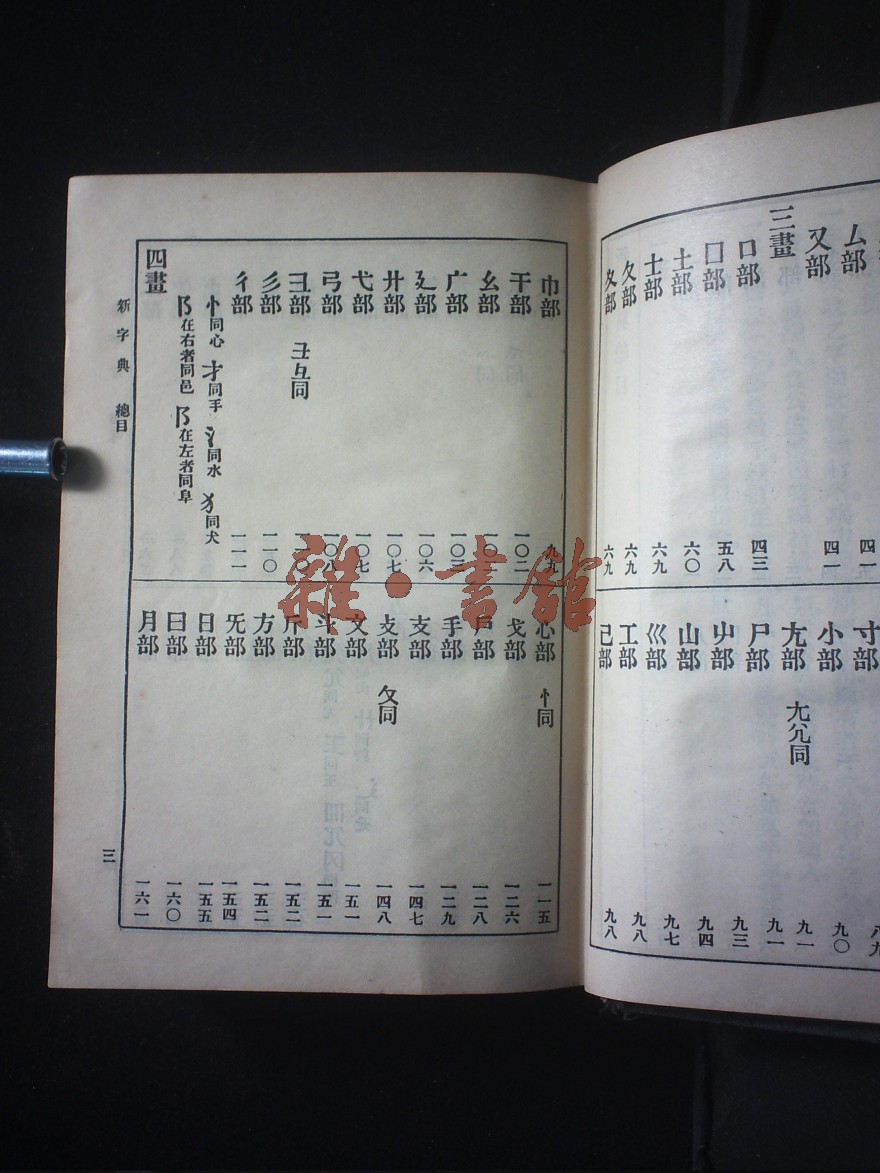 厶部 四一
又部 四一
三畫
口部 四三
囗部 五八
土部 六〇
士部 六九
夂部 六九
夊部 六九
寸部 八九
小部 九〇
尢部 尣同 九一
尸部 九一
屮部 九三
山部 九四
巛部 九七
工部 九八
己部 九八
巾部 九九
干部 一〇二
幺部
广部 一〇三
廴部 一〇六
廾部 一〇七
弋部 一〇七
弓部 一〇八
彐部 彑同
彡部 一一〇
彳部 一一一
忄同心 扌同手 氵同水 犭同犬
阝在右者同邑 阝在左者同阜
四畫
心部 忄同 一一五
戈部 一二六
戶部 一二八
手部 一二九
支部 一四七
攴部 攵同 一四八
文部 一五一
斗部 一五一
斤部 一五二
方部 一五二
无部 一五四
日部 一五五
曰部 一六〇
月部 一六一
新字典 總目
三
雜·書館